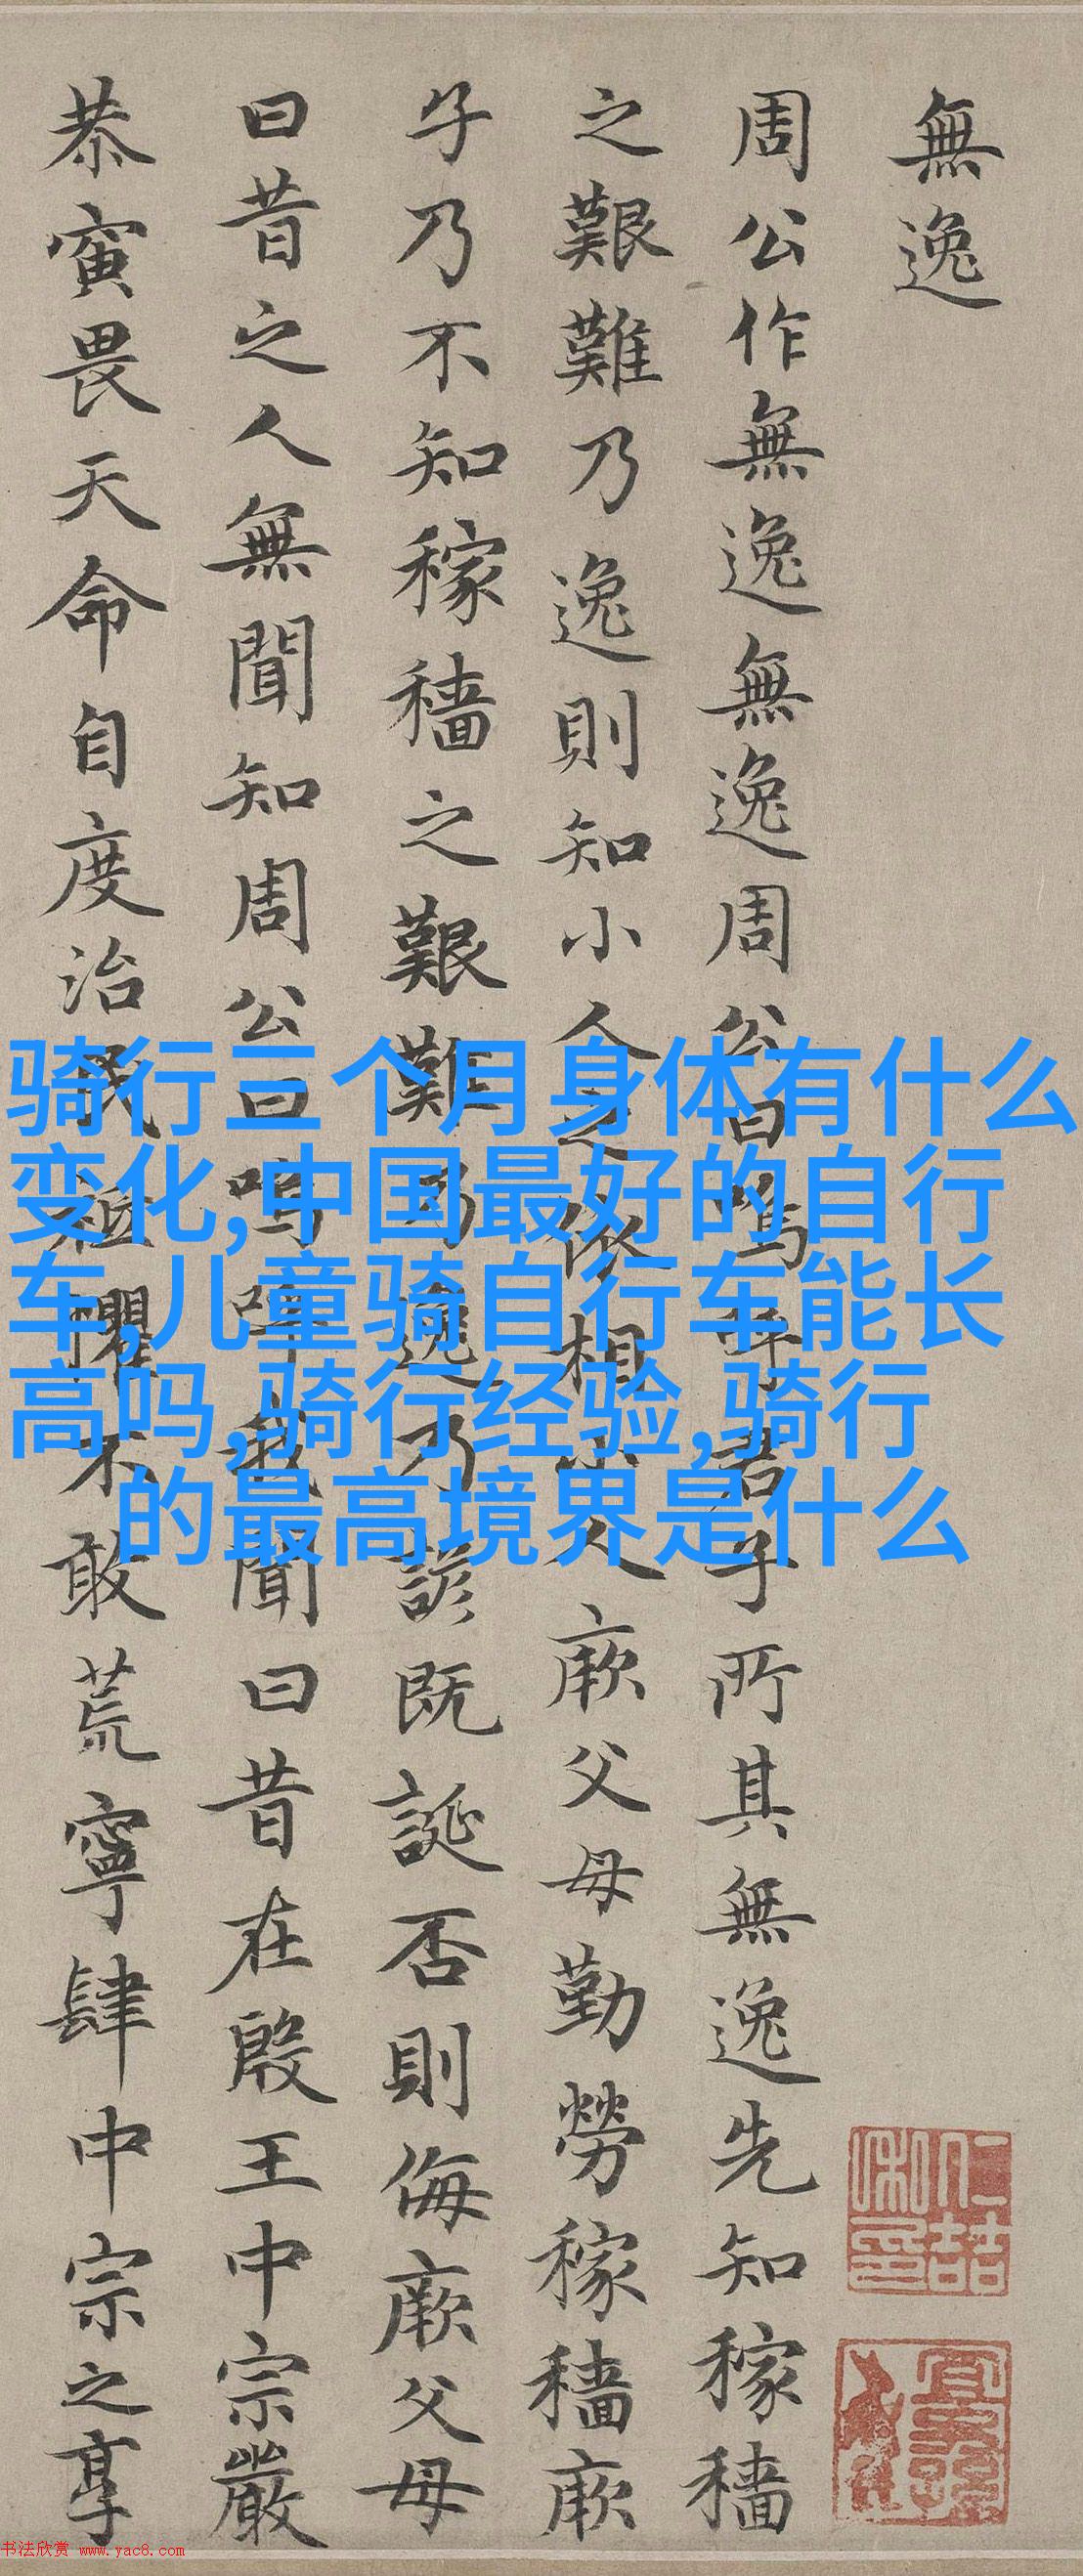 無逸
周公作無逸無逸周公曰嗚呼君子所其無逸先知稼穡
之艱難乃逸則知小人之依相小人厥父母勤勞稼穡厥
子乃不知稼穡之艱難乃逸乃諺既誕否則侮厥父母
曰昔之人無聞知周公曰嗚呼我聞曰昔在殷王中宗嚴
恭寅畏天命自度治民祗懼不敢荒寧肆中宗之享
骑行三个月身体有什么
变化,中国最好的自行
车,儿童骑自行车能长
高吗,骑行经验,骑行
的最高境界是什么
书法欣赏 www.yac8.com